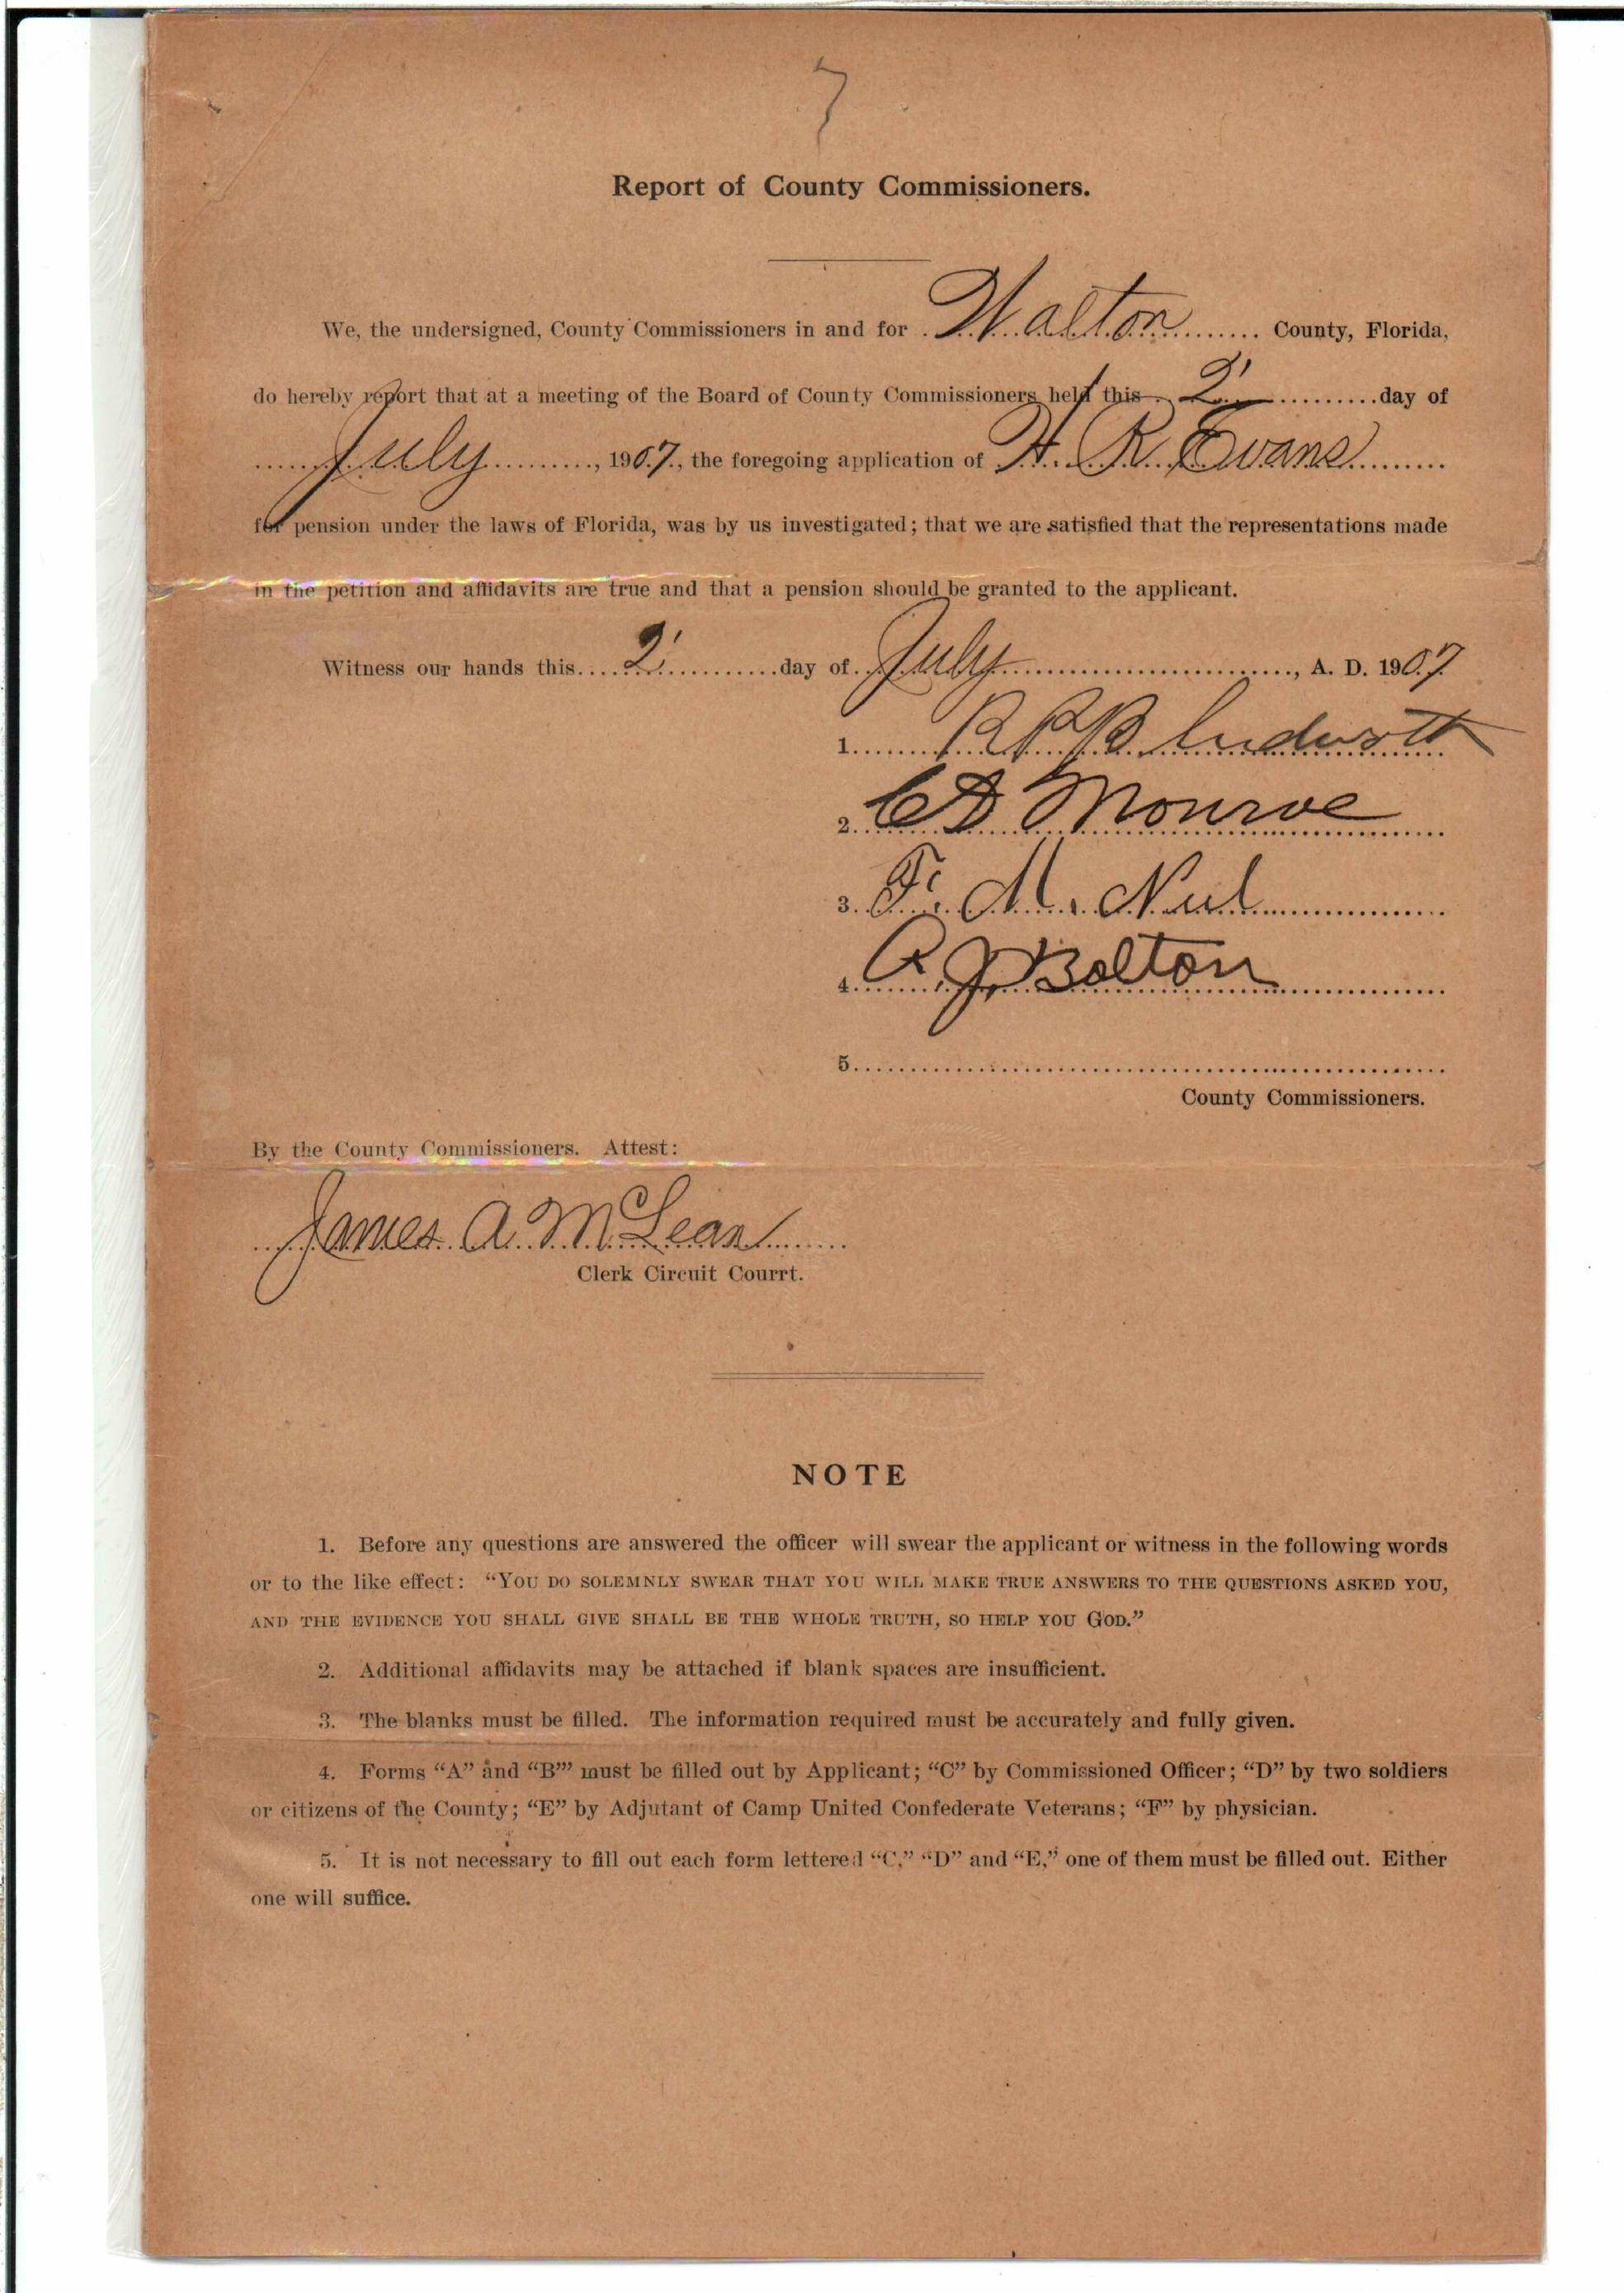 7
Report of County Commissioners.
We, the undersigned, County Commissioners in and for Walton County, Florida,
do hereby report that at a meeting of the Board of County Commissioners held this 2' day of
July, 1907, the foregoing application of H. R. Evans
for pension under the laws of Florida, was by us investigated; that we are satisfied that the representations made
in the petition and affidavits are true and that a pension should be granted to the applicant.
Witness our hands this 2' day of July, A. D. 1907
1.
2. C D Monroe
3. F. M. Neel
4. A J Bolton
5.
County Commissioners.
By the County Commissioners. Attest:
James A. McLean
Clerk Circuit Courrt.
NOTE
1. Before any questions are answered the officer will swear the applicant or witness in the following words
or to the like effect: “YOU DO SOLEMNLY SWEAR THAT YOU WILL MAKE TRUE ANSWERS TO THE QUESTIONS ASKED YOU,
AND THE EVIDENCE YOU SHALL GIVE SHALL BE THE WHOLE TRUTH, SO HELP YOU GOD.”
2. Additional affidavits may be attached if blank spaces are insufficient.
3. The blanks must be filled. The information required must be accurately and fully given.
4. Forms “A” and “B”’ must be filled out by Applicant; “C” by Commissioned Officer; “D” by two soldiers
or citizens of the County; “E” by Adjutant of Camp United Confederate Veterans; “F” by physician.
5. It is not necessary to fill out each form lettered “C,” “D” and “E,” one of them must be filled out. Either
one will suffice.